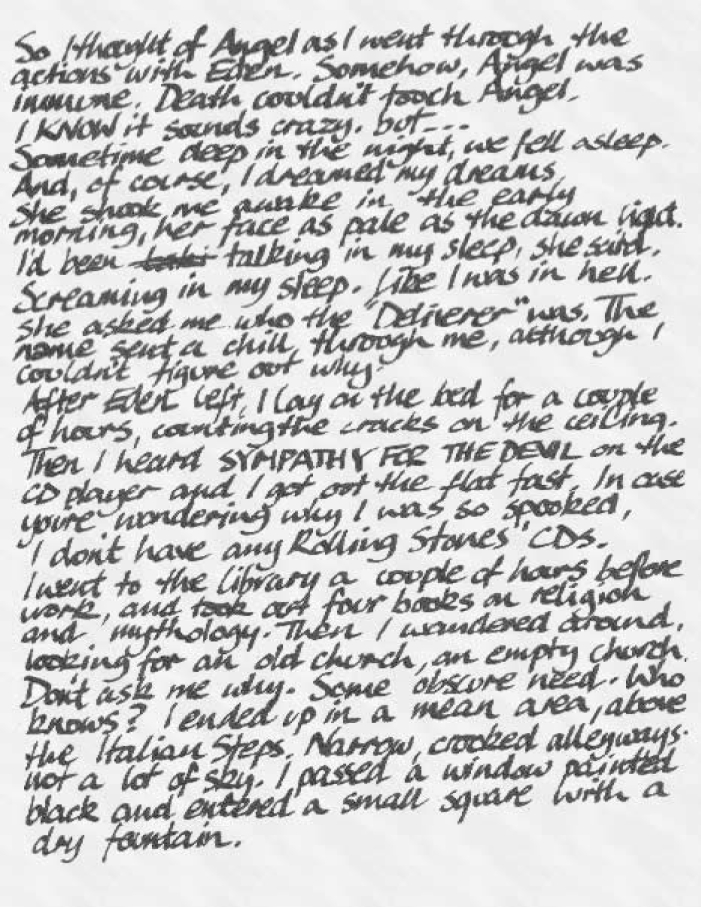 So I thought of Angel as I went through the
actions with Eden. Somehow, Angel was
immune. Death couldn't touch Angel.
I KNOW it sounds crazy. but---
Sometime deep in the night, we fell asleep.
And, of course, I dreamed my dreams.
She shook me awake in the early
morning, her face as pale as the dawn light.
I'd been talking in my sleep, she said.
Screaming in my sleep. Like I was in hell.
She asked me who the "Deliverer" was. The
name sent a chill through me, although I
couldn't figure out why.
After Eden left, I lay on the bed for a couple
of hours, counting the cracks on the ceiling.
Then I heard SYMPATHY FOR THE DEVIL on the
CD player and I got out the flat fast. In case
you're wondering why I was so spooked,
I don't have any Rolling Stones' CDs.
I went to the library a couple of hours before
work, and took out four books on religion
and mythology. Then I wandered around,
looking for an old church, an empty church.
Don't ask me why. Some obscure need. Who
knows? I ended up in a mean area, above
the Italian Steps. Narrow, crooked alleyways.
not a lot of sky. I passed a window painted
black and entered a small square with a
dry fountain.